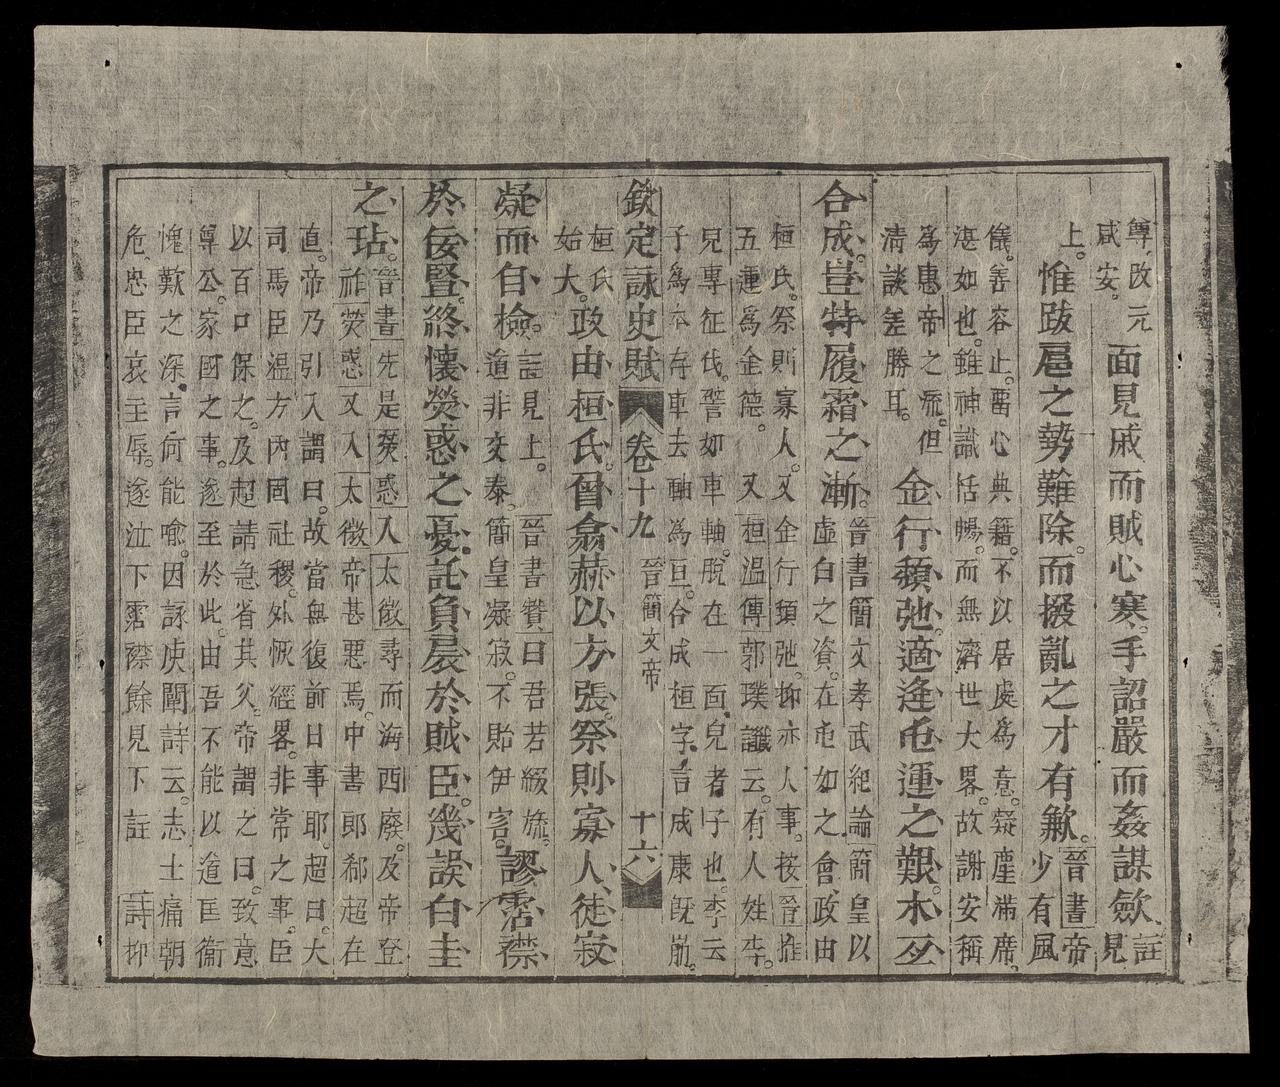 尊改元
咸安。
面見戚而賊心寒。手詔嚴而姦謀歛
註
見
上。
惟跋扈之勢難除。而撥亂之才有歉。
晉書帝
少有風
儀。善容止。畱心典籍。不以居處爲意。凝塵滿席。
湛如也。雖神識恬暢。而無濟世大畧。故謝安稱
爲惠帝之流。但
清談差勝耳。
金行頹弛。適逢屯運之艱。木亙
合成。豈特履霜之漸。
晉書簡文孝武紀論簡皇以
虛白之資。在屯如之會。政由
桓氏。祭則寡人。又金行頹弛。抑亦人事。按晉推
五運爲金德。又桓溫傳郭璞讖云。有人姓李。
兒專征伐。譬如車軸。脫在一面。兒者子也。李云
子爲木存。車去軸爲亘。合成桓字。言成康既崩。
欽定詠史賦 卷十九 晉簡文帝 十六
桓氏
始大。
政由桓氏。曾翕赫以方張。祭則寡人。徒寂
凝而自檢。
註見上。晉書贊曰君若綴旒。
道非交泰。簡皇凝寂。不貽伊害。
謬霑襟
於佞豎。終懷熒惑之憂。託負扆於賊臣。幾誤白圭
之玷。
晉書先是熒惑入太微尋而海西廢。及帝登
祚熒惑又入太微帝甚惡焉。中書郞郗超在
直。帝乃引入謂曰。故當無復前日事耶。超曰。大
司馬臣溫方內固社稷。外恢經畧。非常之事。臣
以百口保之。及超請急省其父。帝謂之曰。致意
尊公。家國之事。遂至於此。由吾不能以道匡衞
愧歎之深。言何能喻。因詠庾闡詩云。志士痛朝
危。忠臣哀主辱。遂泣下霑襟餘見下註 詩抑